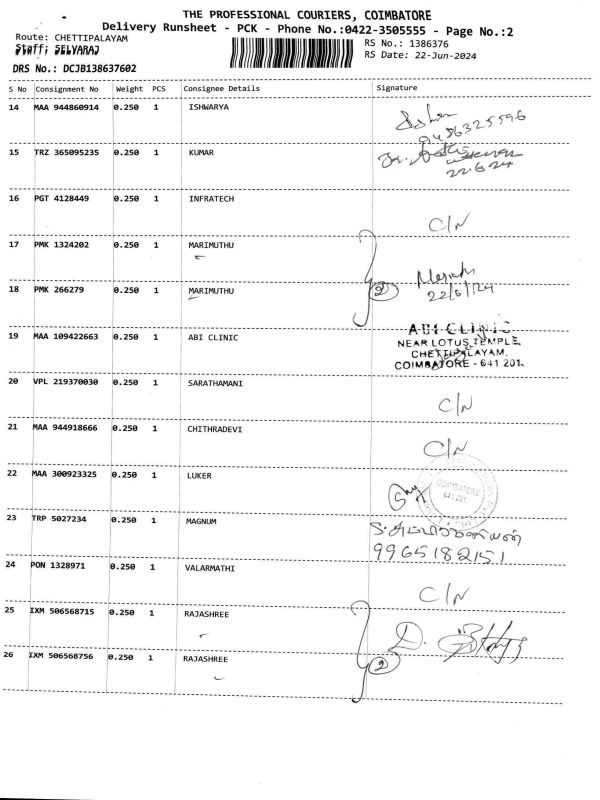 THE PROFESSIONAL COURIERS, COIMBATORE
Delivery Runsheet - PCK - Phone No.:0422-3505555 - Page No.:2
Route: CHETTIPALAYAM
RS No.: 1386376
Staff; SELVARAJ
RS Date: 22-Jun-2024
DRS No.: DCJB138637602
S No Consignment No Weight PCS Consignee Details Signature
14 MAA 944860914 0.250 1 ISHWARYA
9486325596
15 TRZ 365095235 0.250 1 KUMAR
22.6.24
16 PGT 4128449 0.250 1 INFRATECH
C/N
17 PMK 1324202 0.250 1 MARIMUTHU
18 PMK 266279 0.250 1 MARIMUTHU
2
22/6/24
19 MAA 109422663 0.250 1 ABI CLINIC
ABI CLINIC
NEAR LOTUS TEMPLE,
CHETTIPALAYAM,
COIMBATORE - 641 201.
20 VPL 219370030 0.250 1 SARATHAMANI
C/N
21 MAA 944918666 0.250 1 CHITHRADEVI
C/N
22 MAA 300923325 0.250 1 LUKER
COIMBATORE
641 201
23 TRP 5027234 0.250 1 MAGNUM
9965182151
24 PON 1328971 0.250 1 VALARMATHI
C/N
25 IXM 506568715 0.250 1 RAJASHREE
26 IXM 506568756 0.250 1 RAJASHREE
2